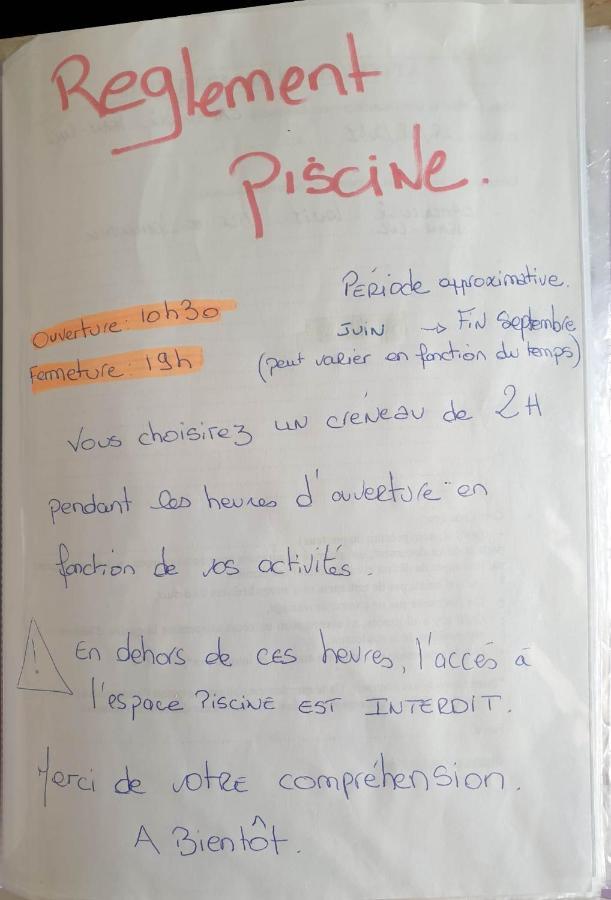 Reglement
Piscine.
Période approximative.
Ouverture: 10h30
JUIN → FIN Septembre
Fermeture: 19h
(peut varier en fonction du temps)
Vous choisirez un créneau de 2H
pendant les heures d'ouverture en
fonction de vos activités.
! En dehors de ces heures, l'accés à
l'espace PISCINE EST INTERDIT.
Merci de votre compréhension.
A Bientôt.